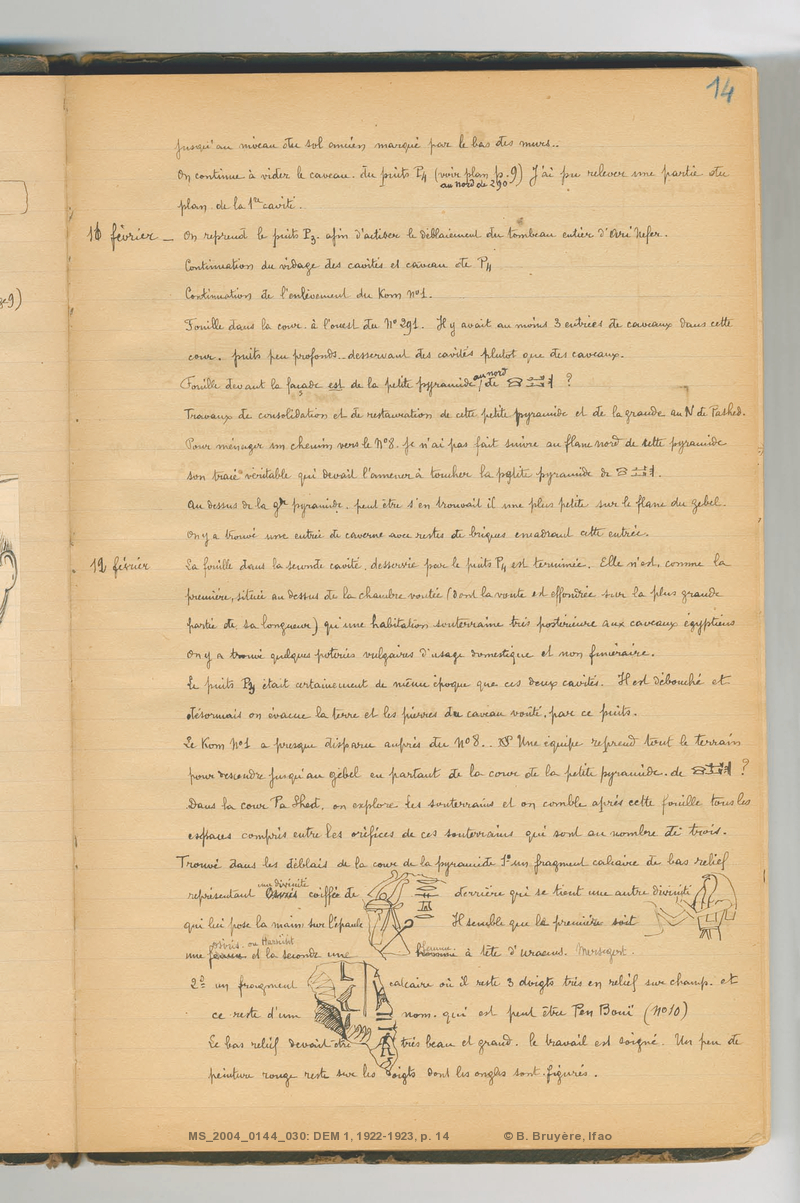 14
jusqu'au niveau du sol ancien marqué par le bas des murs..
On continue à vider le caveau du puits P4 (voir plan p. 9) J'ai pu relever une partie du
au nord de 290
plan de la 1re cavité.
11 février _ On reprend le puits P3. afin d'activer le déblaiement du tombeau entier d'Ari Nefer.
Continuation du vidage des cavités et caveau de P4
Continuation de l'enlèvement du Kom N°1.
Fouille dans la cour à l'ouest du N° 291. Il y avait au moins 3 entrées de caveaux dans cette
cour. puits peu profonds _ desservant des cavités plutot que des caveaux.
Fouille devant la façade est de la petite pyramide au nord de ?
Travaux de consolidation et de restauration de cette petite pyramide et de la grande au N de Pashed.
Pour ménager un chemin vers le N°8. je n'ai pas fait suivre au flanc nord de cette pyramide
son tracé véritable qui devait l'amener à toucher la petite pyramide de
Au dessus de la gde pyramide. peut être s'en trouvait il une plus petite sur le flanc du gebel.
On y a trouvé une entrée de caverne avec restes de briques encadrant cette entrée.
12 février La fouille dans la seconde cavité, desservie par le puits P4 est terminée. Elle n'est, comme la
première, située au dessus de la chambre voutée (dont la voute est effondrée sur la plus grande
partie de sa longueur) qu'une habitation souterraine très postérieure aux caveaux égyptiens
On y a trouvé quelques poteries vulgaires d'usage domestique et non funéraire.
Le puits P4 était certainement de même époque que ces deux cavités. Il est débouché et
désormais on évacue la terre et les pierres du caveau vouté, par ce puits.
Le Kom N°1 a presque disparu auprès du N°8.. Une équipe reprend tout le terrain
pour descendre jusqu'au gébel en partant de la cour de la petite pyramide. de ?
Dans la cour Pa Shed, on explore les souterrains et on comble après cette fouille tous les
espaces compris entre les orifices de ces souterrains qui sont au nombre de trois.
Trouvé dans les déblais de la cour de la pyramide 1° un fragment calcaire de bas relief
représentant Osiris une divinité coiffée de derrière qui se tient une autre divinité
qui lui pose la main sur l'épaule Il semble que la première soit
une femme osiris ou Harsiést et la seconde une homme femme à tête d'uraeus. Mersegert.
2° un fragment calcaire où il reste 3 doigts très en relief sur champ. et
ce reste d'un nom. qui est peut être Pen Bouï (N°10)
Le bas relief devait être très beau et grand. le travail est soigné. Un peu de
peinture rouge reste sur les doigts dont les ongles sont figurés.
MS_2004_0144_030: DEM 1, 1922-1923, p. 14 © B. Bruyère, Ifao